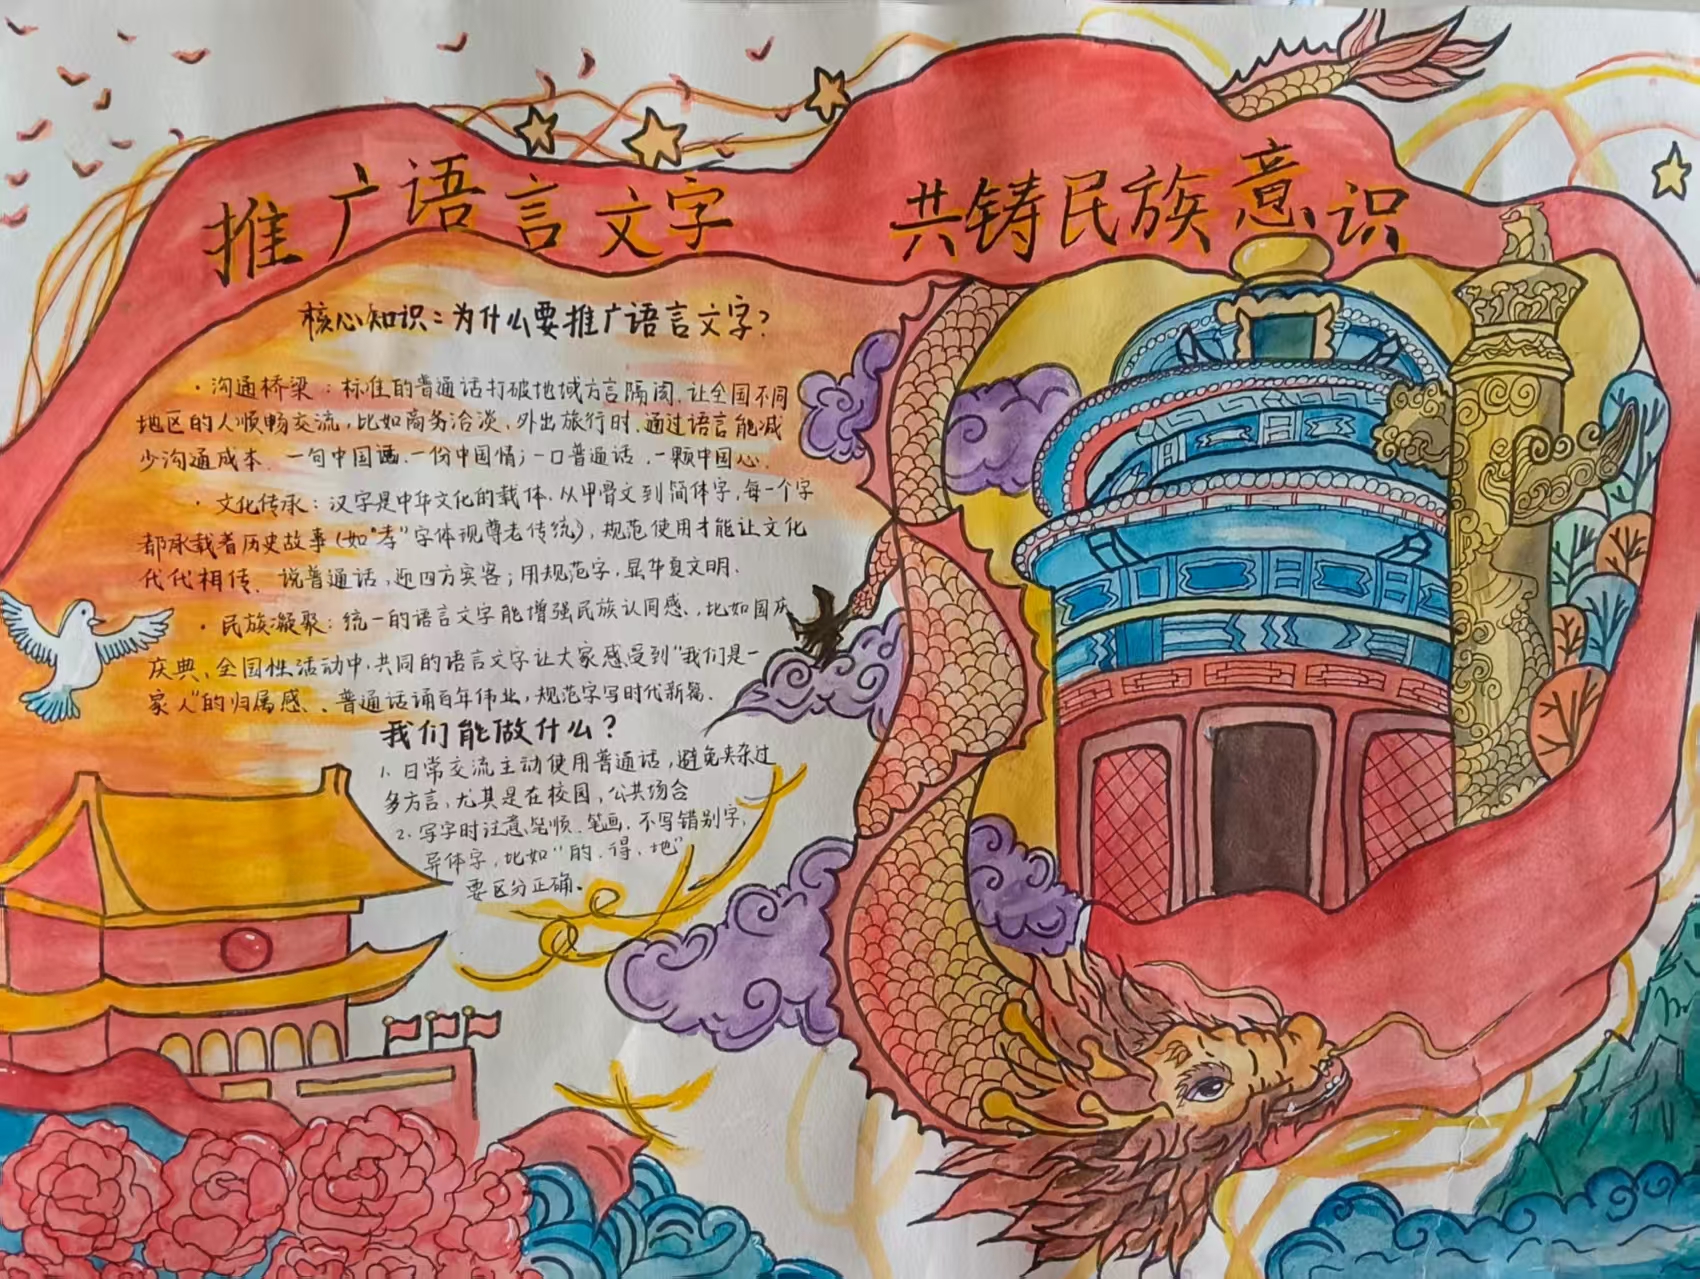 推广语言文字 共铸民族意识
核心知识：为什么要推广语言文字？
·沟通桥梁：标准的普通话打破地域方言隔阂，让全国不同
地区的人顺畅交流，比如商务洽淡、外出旅行时，通过语言能减
少沟通成本．一句中国话，一份中国情；一口普通话，一颗中国心．
·文化传承：汉字是中华文化的载体．从甲骨文到简体字，每一个字
都承载着历史故事(如“孝”字体现尊老传统)，规范使用才能让文化
代代相传．说普通话，迎四方宾客；用规范字，显华夏文明．
·民族凝聚：统一的语言文字能增强民族认同感、，比如国庆
庆典、全国性活动中，共同的语言文字让大家感受到“我们是一
家人”的归属感．、普通话诵百年伟业，规范字写时代新篇．
我们能做什么？
1．日常交流主动使用普通话，避免夹杂过
多方言，尤其是在校园，公共场合
2．写字时注意笔顺．笔画．不写错别字，
异体字，比如“的．得、地”
要区分正确。